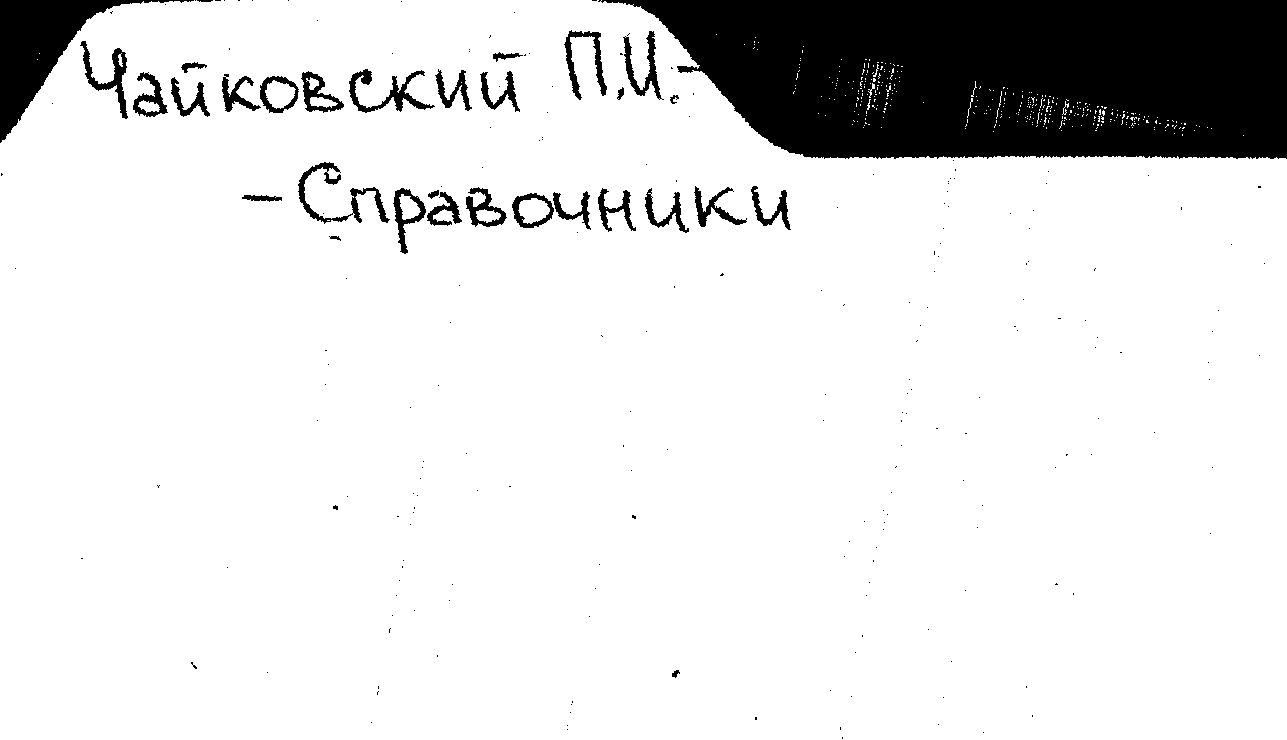 Чайковский П.И.-
- Справочники